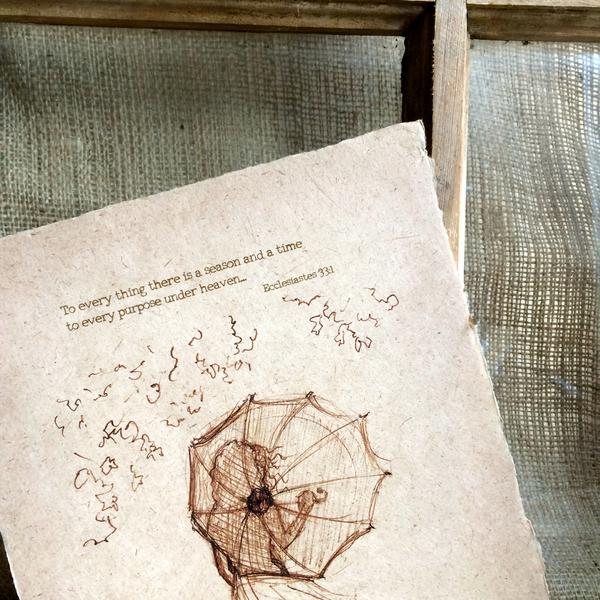 To every thing there is a season and a time
to every purpose under heaven...
Ecclesiastes 33:1